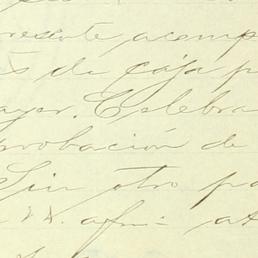 resente acomp
s de caja p
ayer. Celebra
robación de
Sin otro pa
XX. afm: at